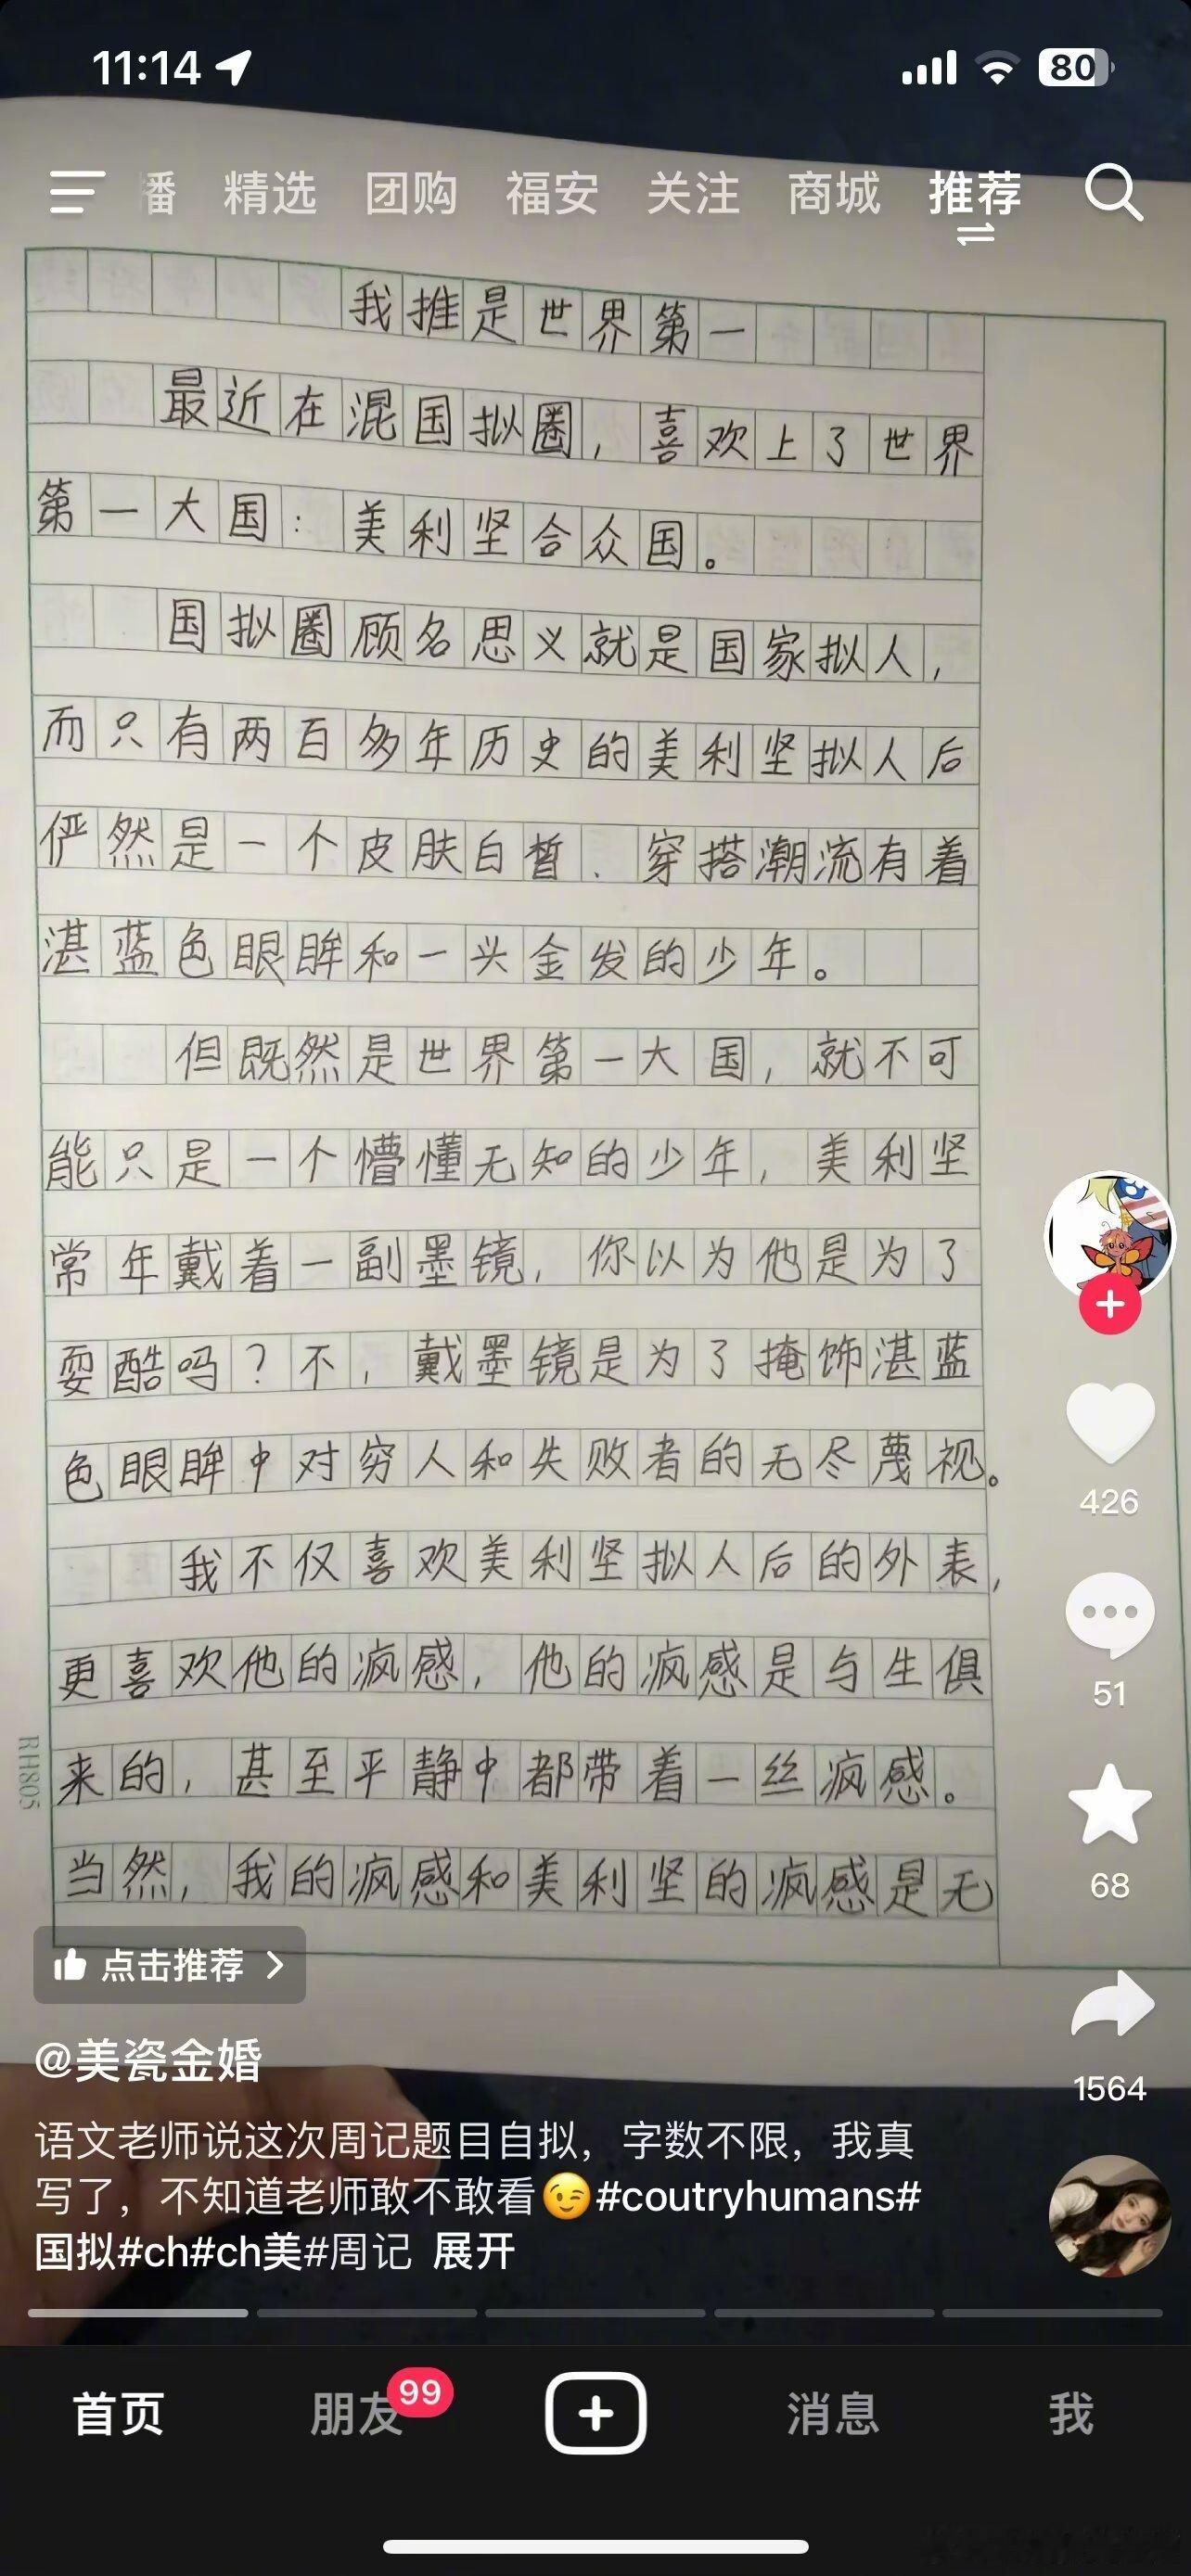 11:14
80
播 精选 团购 福安 关注 商城 推荐
我推是世界第一
最近在混国拟圈，喜欢上了世界
第一大国：美利坚合众国。
国拟圈顾名思义就是国家拟人，
而只有两百多年历史的美利坚拟人后
俨然是一个皮肤白皙、穿搭潮流有着
湛蓝色眼眸和一头金发的少年。
但既然是世界第一大国，就不可
能只是一个懵懂无知的少年，美利坚
常年戴着一副墨镜，你以为他是为了
耍酷吗？不，戴墨镜是为了掩饰湛蓝
色眼眸中对穷人和失败者的无尽蔑视。
我不仅喜欢美利坚拟人后的外表，
更喜欢他的疯感，他的疯感是与生俱
来的，甚至平静中都带着一丝疯感。
当然，我的疯感和美利坚的疯感是无
RH805
426
51
68
1564
点击推荐
@美瓷金婚
语文老师说这次周记题目自拟，字数不限，我真
写了，不知道老师敢不敢看😉#coutryhumans#
国拟#ch#ch美#周记 展开
首页 朋友 99 消息 我